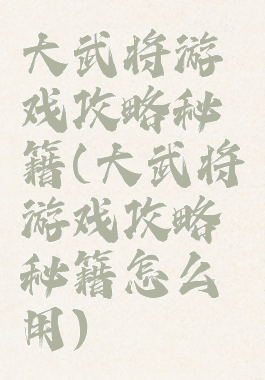 大武将游
戏攻略秘
籍(大武将
游戏攻略
秘籍怎么
用)